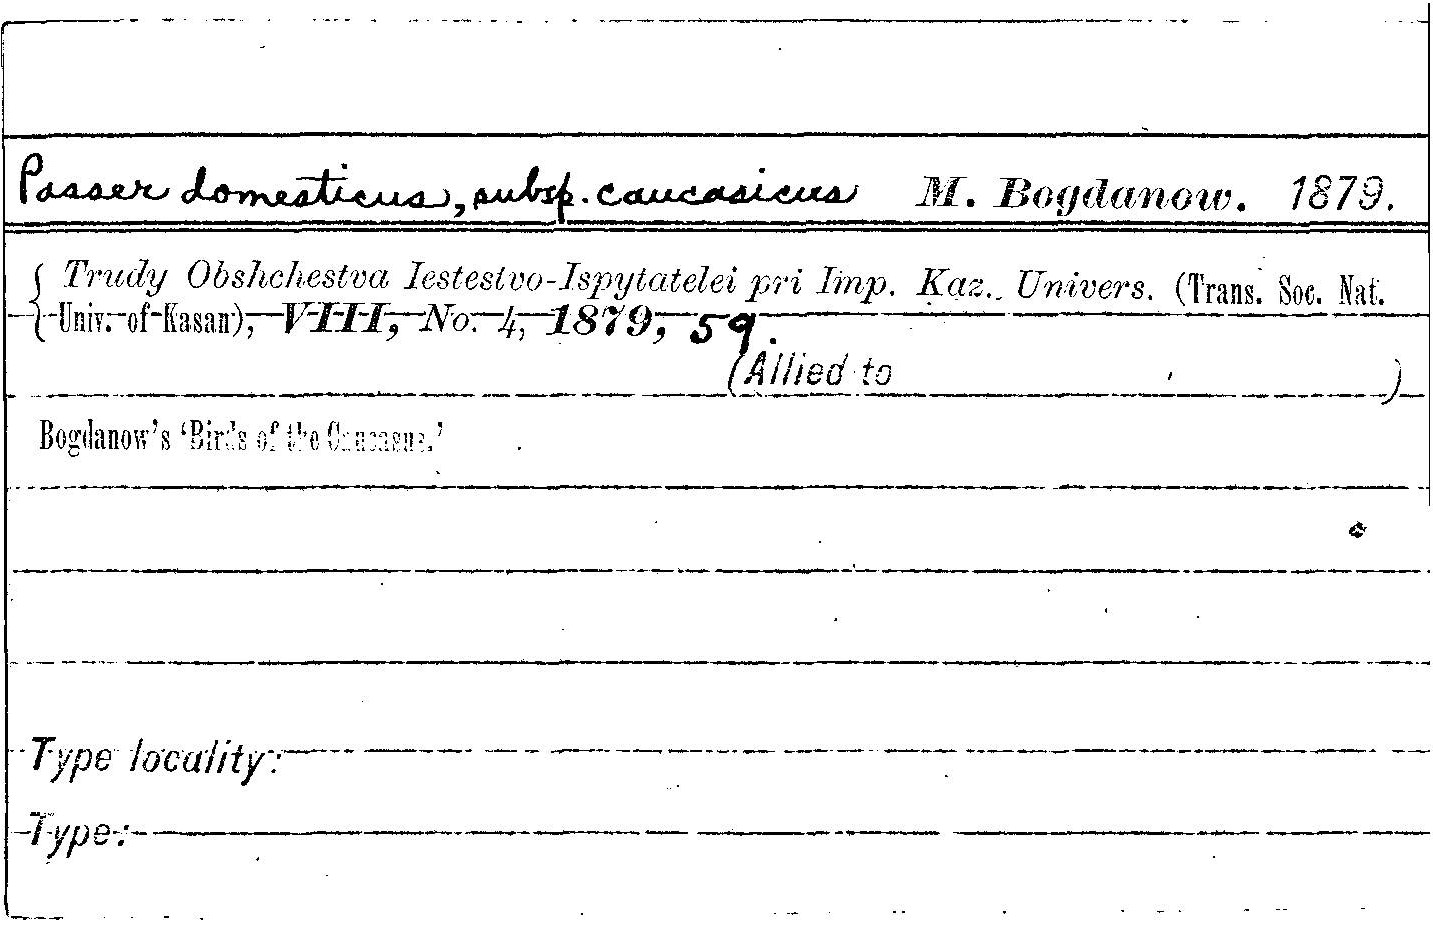 Passer domesticus, subsp. caucasicus M. Bogdanow. 1879.
Trudy Obshchestva Iestestvo-Ispytatelei pri Imp. Kaz. Univers. (Trans. Soc. Nat.
Univ. of Kasan), VIII, No. 4, 1879, 59.
(Allied to )
Bogdanow's 'Birds of the Caucasus.'
Type locality:
Type: